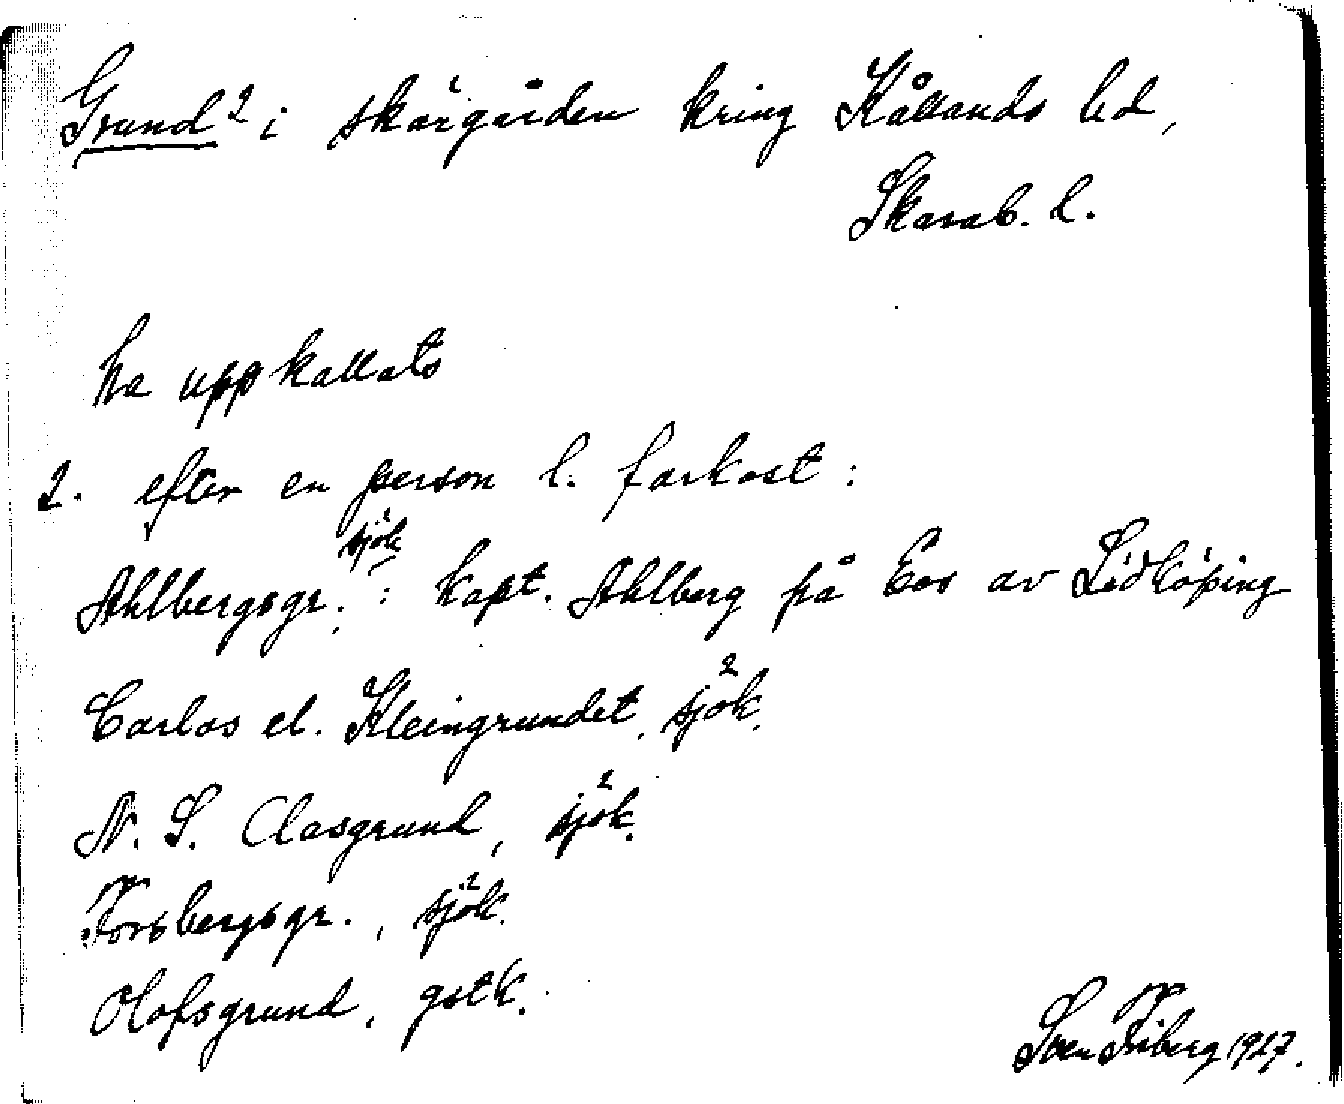 Grund² i skärgården kring Kållands hd,
Skarab. l.
ha uppkallats
2. efter en person l. farkost:
sjök
Ahlbergsgr. : kapt. Ahlberg på Eos av Lidköping
Carlos el. Kleingrundet, sjök.
N. S. Clasgrund, sjök.
Forsbergsgr., sjök.
Olofsgrund, gstk.
Sven Friberg 1927.